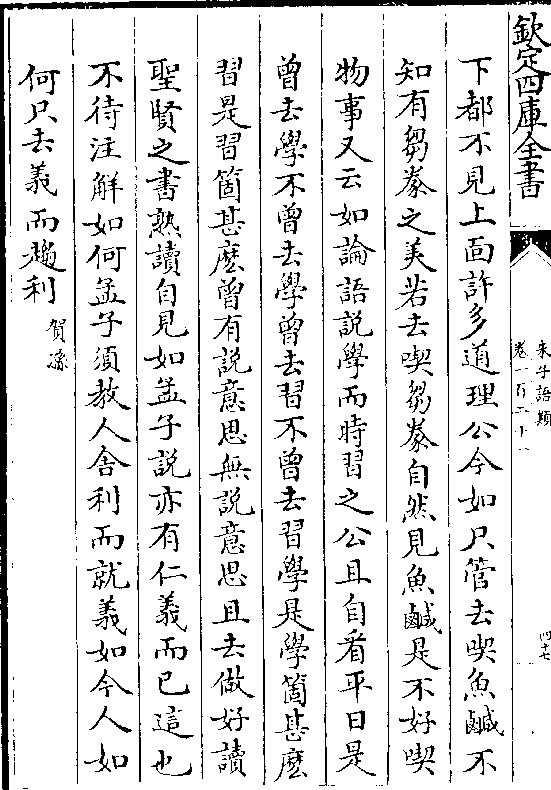 欽定四庫全書
朱子語類
卷一百二十一
四七
下都不見上面許多道理公今如只管去喫魚鹹不
知有芻豢之美若去喫芻豢自然見魚鹹是不好喫
物事又云如論語説學而時習之公且自看平日是
曾去學不曾去學曾去習不曾去習學是學箇甚麽
習是習箇甚麽曾有説意思無説意思且去做好讀
聖賢之書熟讀自見如孟子説亦有仁義而已這也
不待注解如何孟子須教人舍利而就義如今人如
何只去義而趨利賀孫